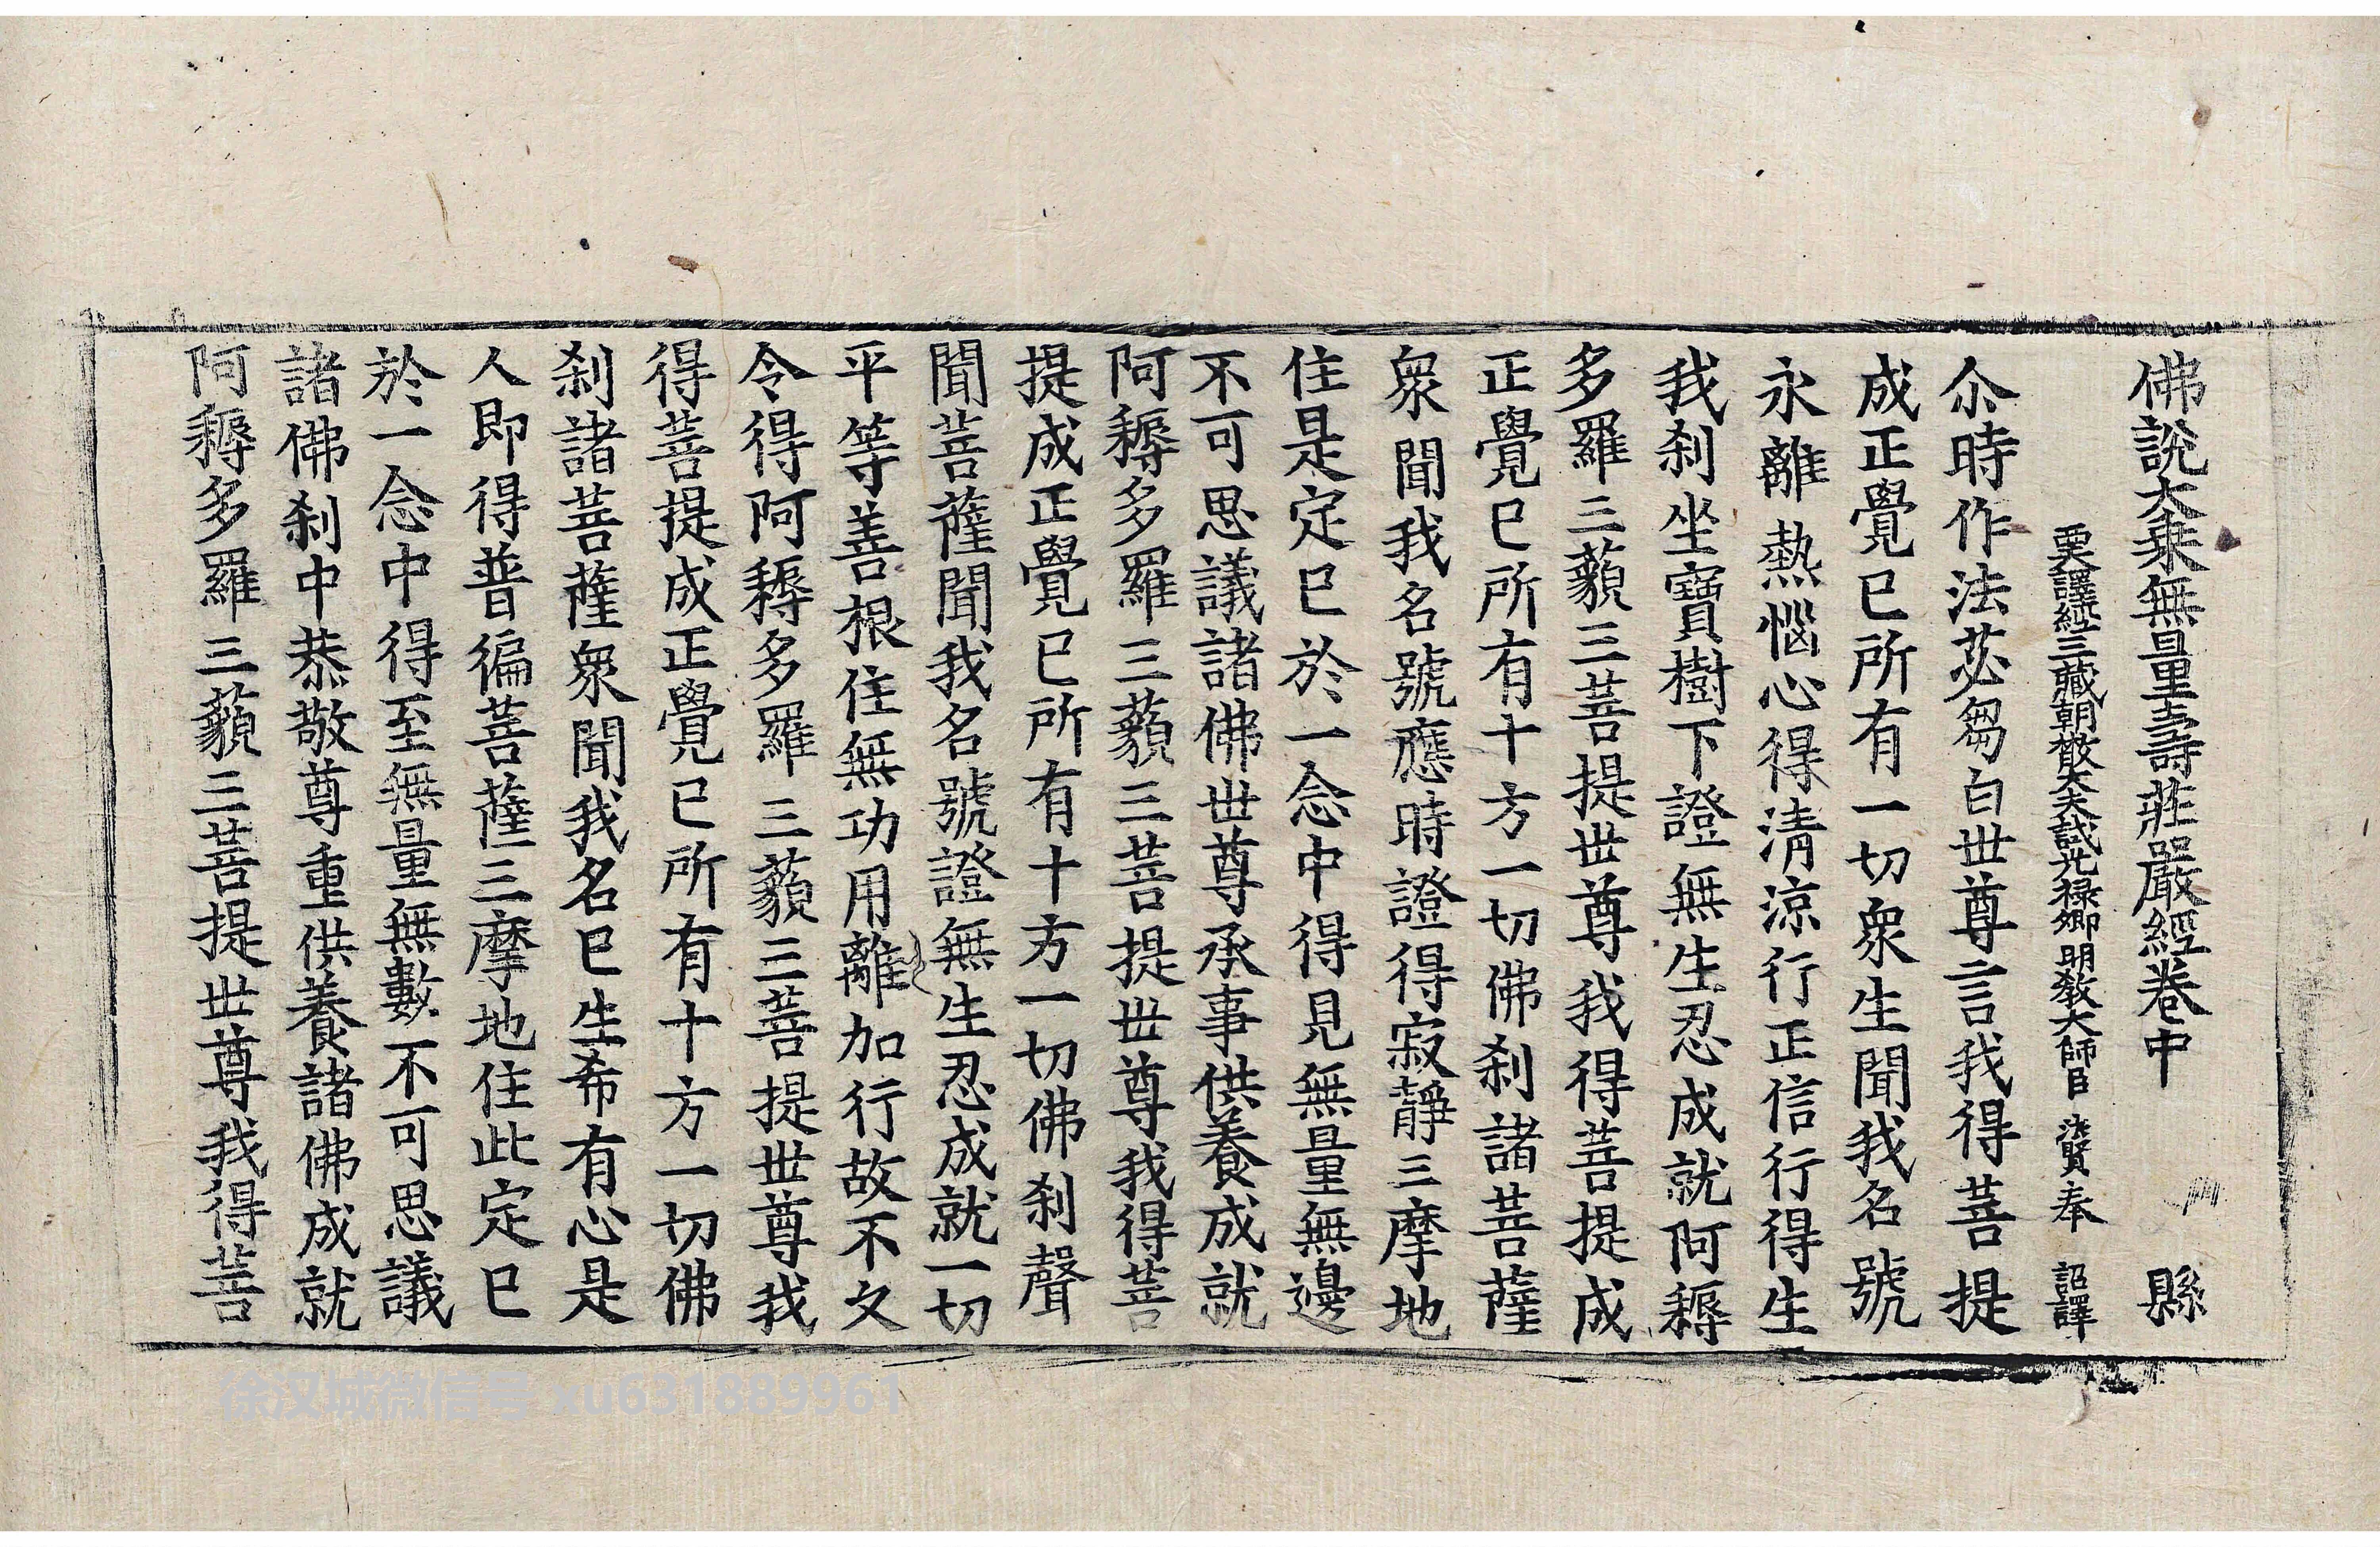 佛說大乘無量壽莊嚴經卷中 縣
西天譯經三藏朝散大夫試光祿卿明教大師臣 法賢 奉 詔譯
尒時作法苾芻白世尊言我得菩提
成正覺已所有一切衆生聞我名號
永離熱惱心得清涼行正信行得生
我刹坐寶樹下證無生忍成就阿耨
多羅三藐三菩提世尊我得菩提成
正覺已所有十方一切佛刹諸菩薩
衆聞我名號應時證得寂靜三摩地
住是定已於一念中得見無量無邊
不可思議諸佛世尊承事供養成就
阿耨多羅三藐三菩提世尊我得菩
提成正覺已所有十方一切佛刹聲
聞菩薩聞我名號證無生忍成就一切
平等善根住無功用離加行故不久
令得阿耨多羅三藐三菩提世尊我
得菩提成正覺已所有十方一切佛
刹諸菩薩衆聞我名已生希有心是
人即得普徧菩薩三摩地住此定已
於一念中得至無量無數不可思議
諸佛刹中恭敬尊重供養諸佛成就
阿耨多羅三藐三菩提世尊我得菩
徐汉城微信号 xu631889961